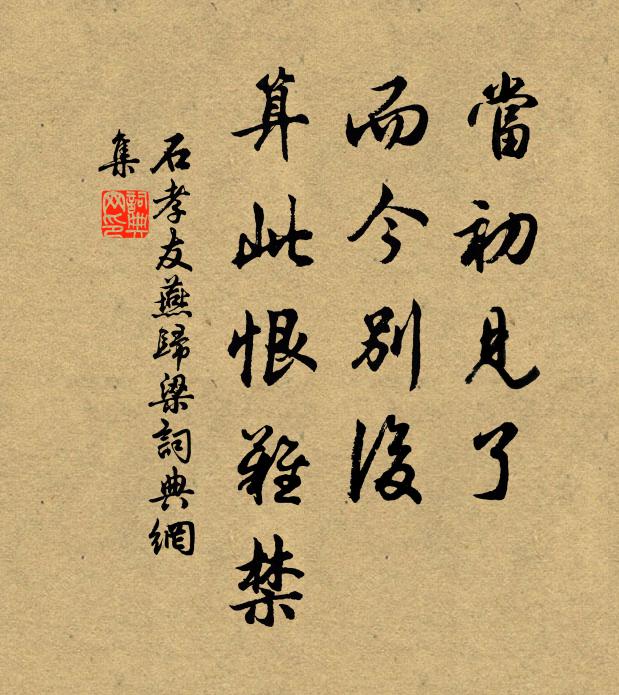 當初見了
而今別後
算此恨難禁
石孝友燕歸梁詞典網
集
詞典
网印